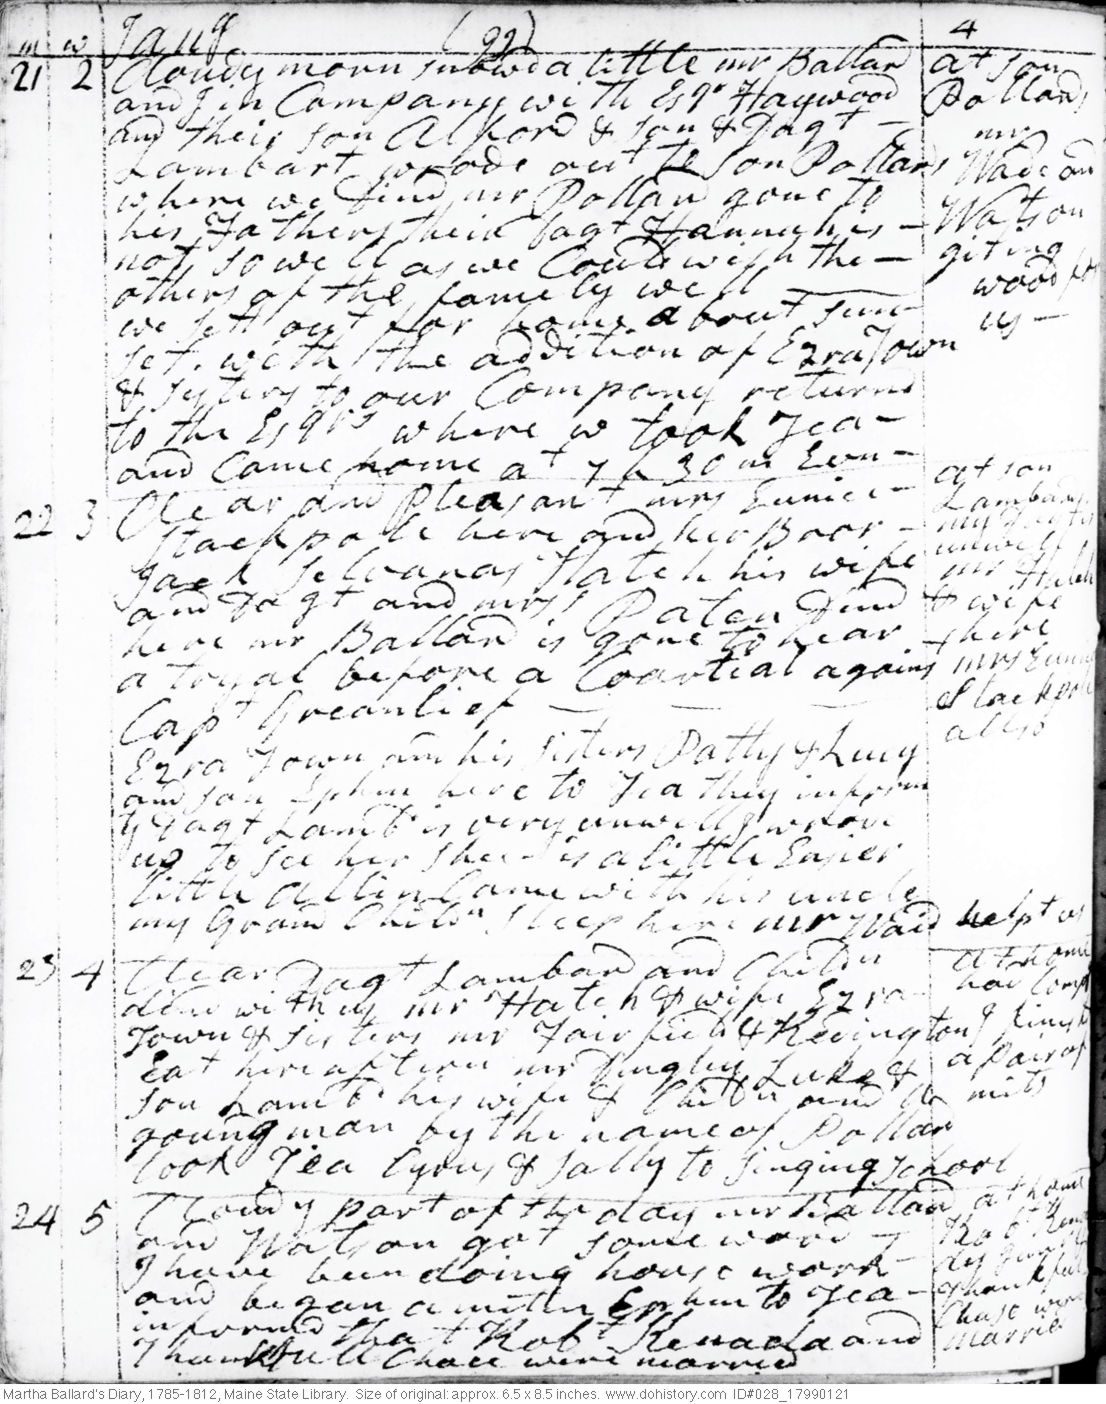 m w Jany (99) 4
21 2 Cloudy morn snowd a little mr Ballard
and I in Company with Esqr Haywood
and their son Alford & son & Dagt
Lambart wrode out to son Pollards
where we find mr Pollard gone to
his Fathers their Dagt Hannah is
not so well as we Could wish the
others of the famely well
we sett out for home about sun
set. with the addition of Ezra Town
& sisters to our Company returnd
to the Esqrs where w took Tea
and Came home at 7 h 30 m Evn
at son
Pollards
mr
Wade and
Watson
giting
wood for
us
22 3 Clear and Pleasant mrs Eunice
Stackpole here and her Boor
Jack Selvanas Hatch his wife
and Dagt and mrs Paten Dind
here mr Ballard is gone to hear
a tryal before a Coartial against
Capt Greanlief
Ezra Town and his sisters Patty & Lucy
and son Ephm here to Tea they inform
Dagt Lambd is very unwell I wrode
up to see her shee is a little Easier
little Allin Came with his uncle
my Grand Childn sleep here mr Waid helpt us
at son
Lambards
my Dagtr
unwell
mr Hatch
& wife
here
mrs Eunice
Stackpole
allso
23 4 Clear Dagt Lambard and Childn
dine with us mr Hatch & wife Ezra
Town & sisters mr Fairfield & Kevington
Eat here aftern mr Dingley Luke &
son Lambd his wife & Childn and a
young man by the name of Pollard
took Tea Cyrus & Sally to singing school
at home
had Compy
I finisht
a pair of
mits
24 5 Cloudy part of the day mr Ballard
and Watson got some wood
I have been doing hous work
and began a mittin Ephm to Tea
informd that Robt Kenada and
Thankfull Chace were married
at home
Robt Kena
day
Thankfull
Chase were
married
Martha Ballard's Diary, 1785-1812, Maine State Library. Size of original: approx. 6.5 x 8.5 inches. www.dohistory.com ID#028_17990121